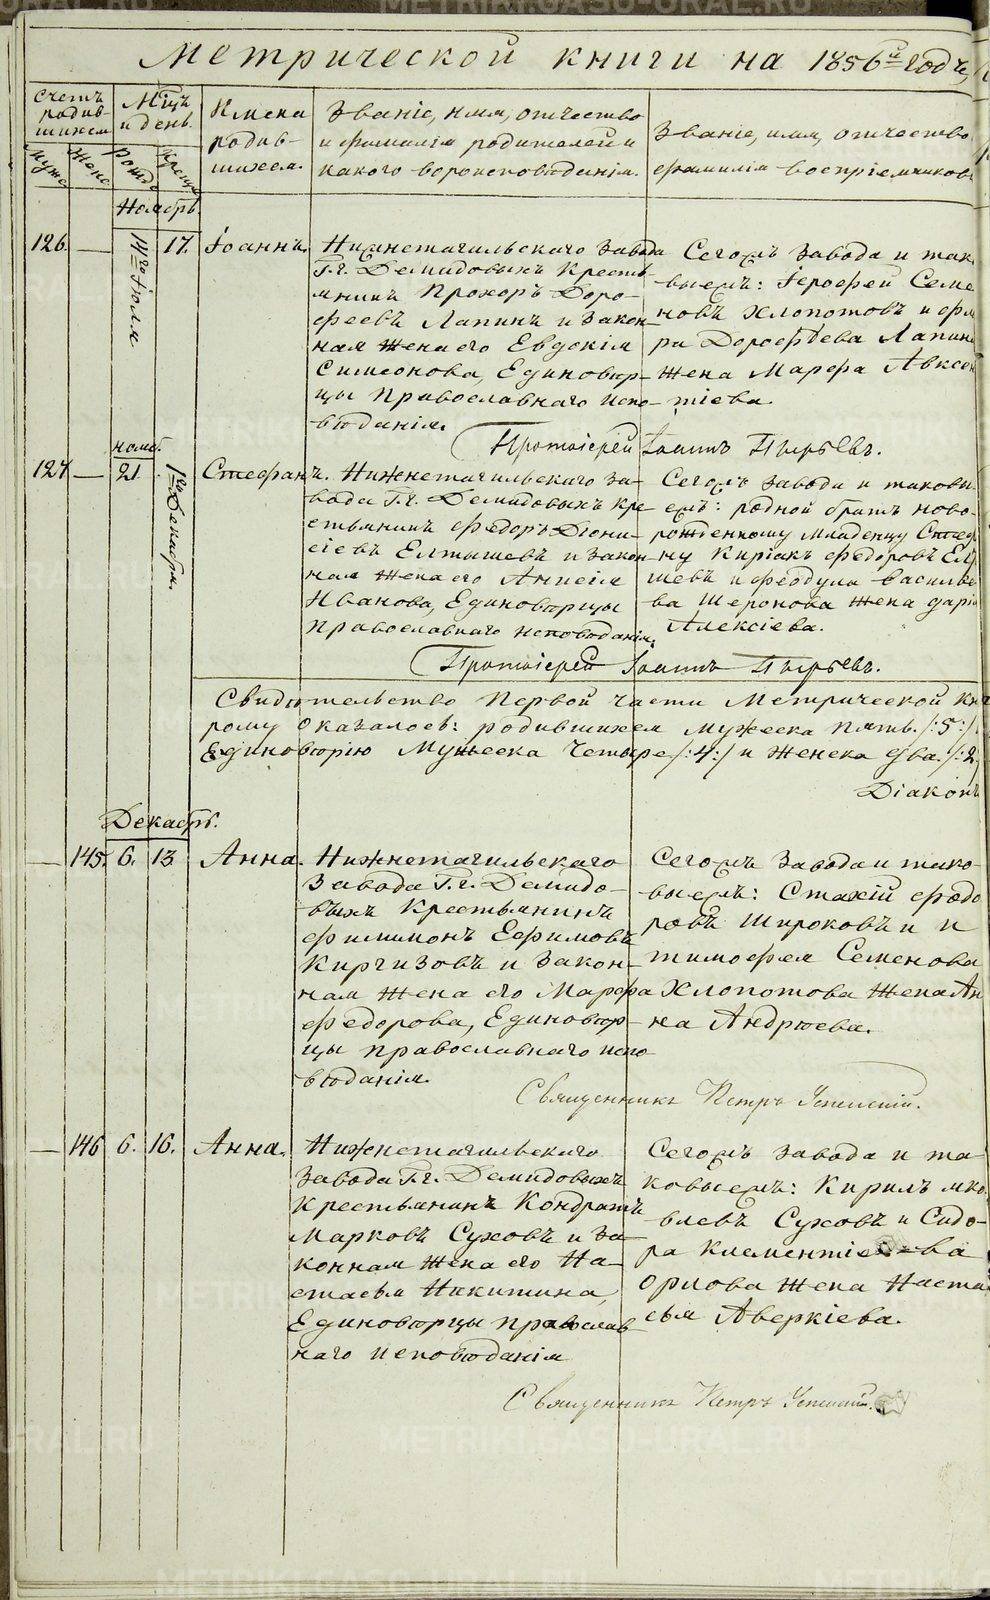 Метрической книги на 1856й годъ,
Счетъ родив-шихся
Мѣцъ и день.
Имена родив-шихся.
Званіе, имя, отчество и фамилія родителей и какого вѣроисповѣданія.
Званіе, имя, отчество фамилія воспріемниковъ
Муже
Жене
Рожде
Креще
Ноябрь.
126. — 14го Іюля 17. Іоаннъ.
Нижнетагильскаго завода
Г.г. Демидовыхъ Кресть-
янинъ Прохоръ Доро-
феевъ Лапинъ и закон-
ная жена его Евдокія
Симеонова, Единовѣр-
цы Православнаго испо-
вѣданія.
Сегожъ завода и так
выежъ: Іерофей Семе
новъ Хлопотовъ и
ри Дорофѣева Лапин
жена Марфа Авксен
тіева.
Протоіерей Іоаннъ Пырьевъ.
нояб.
127 — 21 1го Декабря. Стефанъ.
Нижнетагильскаго за-
вода Г.г. Демидовыхъ кре
стьянинъ Федоръ Діони-
сіевъ Елтышевъ и закон
ная жена его Анисія
Иванова, Единовѣрцы
Православнаго исповѣданія.
Сегожъ завода и таковы
ежъ: родной братъ ново-
рожденному младенцу Стеф
ну Киріакъ Федоровъ Ел
шевъ и Феодула Василье
ва Шеронова жена Дарія
Алексіева.
Протоіерей Іоаннъ Пырьевъ.
Свидѣтельство Первой части Метрической Кни
рому оказалось: родившихся мужеска пять /:5:/
Единовѣрію Мужеска четыре /:4:/ и женска два /:2:
Діаконъ
Декабрь.
— 145. 6. 13 Анна.
Нижнетагильскаго
завода Г.г. Демидо-
выхъ Крестьянинъ
Филимонъ Ефимовъ
Киргизовъ и закон-
ная жена его Марфа
Федорова, Единовѣр-
цы православнаго испо
вѣданія.
Сегожъ завода и тако-
выежъ: Стахій Федо
ровъ Широковъ и и
тимофея Семенова
Хлопотова жена Ан
на Андрѣева.
Священникъ Петръ Успенскій.
— 146 6. 16. Анна.
Нижнетагильскаго
завода Г.г. Демидовыхъ
Крестьянинъ Кондратъ
Марковъ Суховъ и за-
конная жена его На-
стасья Никитина,
Единовѣрцы православ
наго исповѣданія
Сегожъ завода и та-
ковыежъ: Кирилъ яко
влевъ Суховъ и Сидо-
ра Клементіева
Орлова жена Наста
сья Аверкіева.
Священникъ Петръ Успенскій.
METRIKI.GASO-URAL.RU